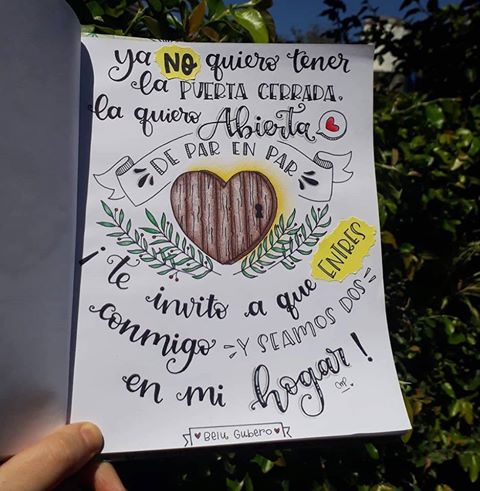 ya NO quiero tener
la PUERTA CERRADA,
la quiero Abierta
DE PAR EN PAR
¡te invito a que ENTRES
conmigo Y SEAMOS DOS
en mi hogar!
Belu Gubero